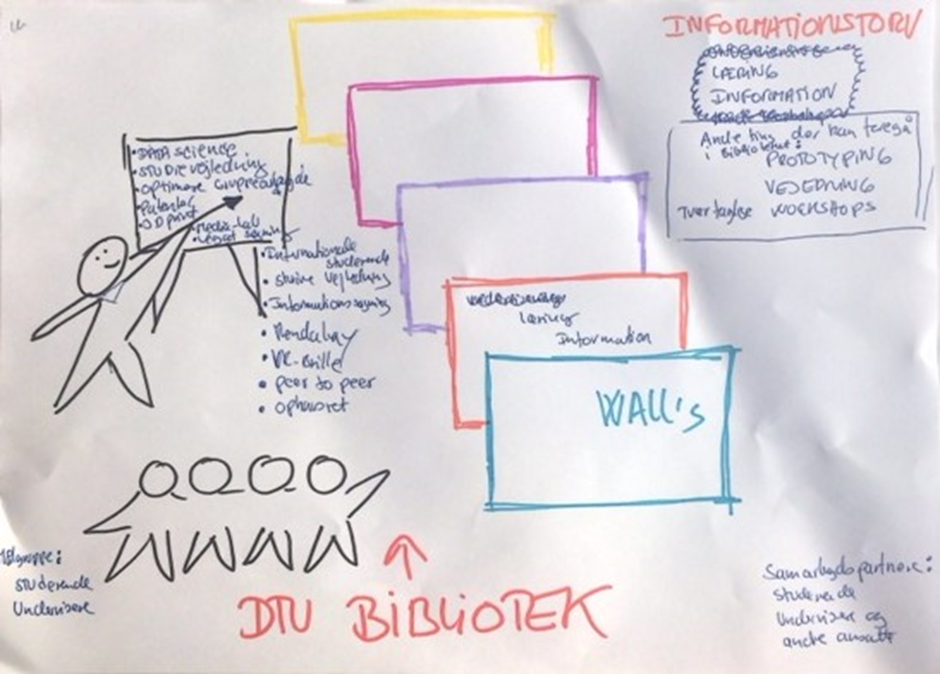 INFORMATIONSTORV
LÆRING
INFORMATION
Andre ting der kan foregå
i Biblioteket:
PROTOTYPING
VEJEDNING
Tværfaglige WORKSHOPS
• DATA science
• STUDIEvejledning
• optimere
• Patentlab
• 3D print
• media-lab
• Internationale
studerende
• skrive vejledning
• Informationssøgning
• Mendeley
• VR-briller
• peer to peer
• ophavsret
læring
Information
WALL's
Målgruppe:
studerende
Undervisere
DTU BIBLIOTEK
Samarbejdspartnere:
studerende
undervisere og
andre ansatte